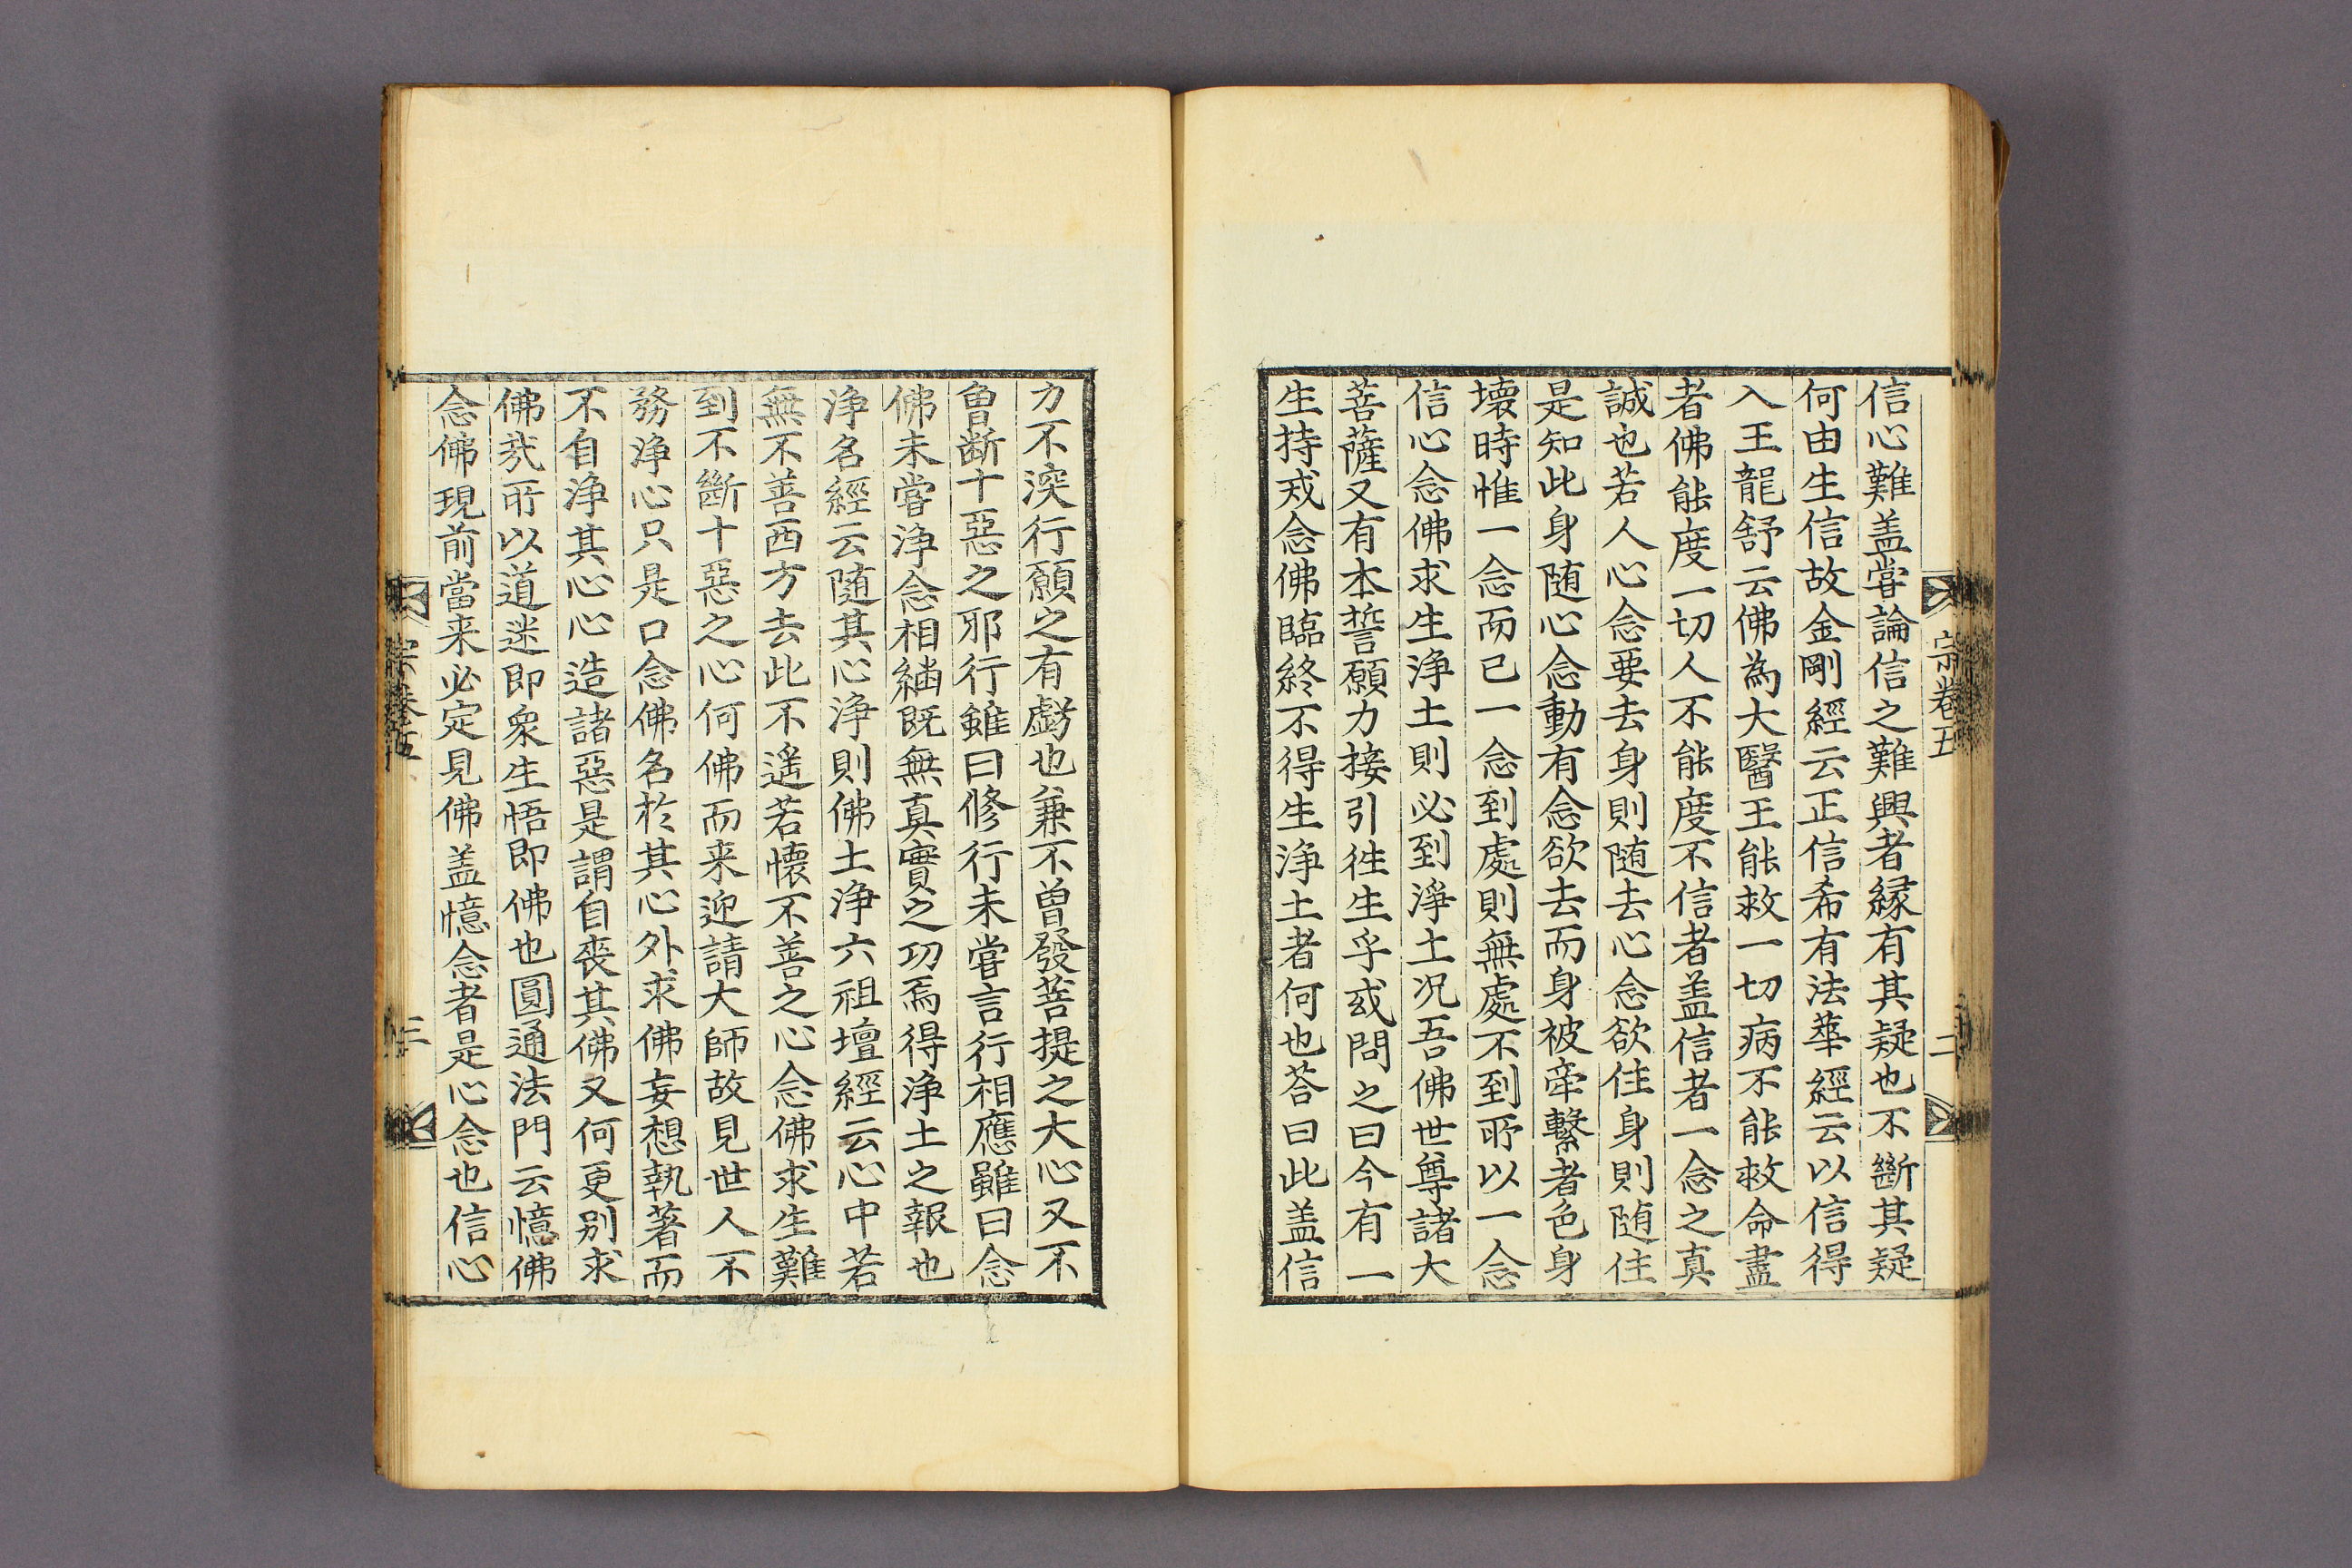 信心難盖甞論信之難興者緣有其疑也不斷其疑
何由生信故金剛經云正信希有法華經云以信得
入王龍舒云佛為大醫王能救一切病不能救命盡
者佛能度一切人不能度不信者盖信者一念之真
誠也若人心念要去身則随去心念欲住身則随住
是知此身随心念動有念欲去而身被牵繫者色身
壞時惟一念而已一念到處則無處不到所以一念
信心念佛求生淨土則必到淨土况吾佛世尊諸大
菩薩又有本誓願力接引徃生乎或問之曰今有一
生持戒念佛臨終不得生淨土者何也荅曰此盖信
宗卷五
二
力不深行願之有虧也兼不曾發菩提之大心又不
曾断十惡之邪行雖曰修行未甞言行相應雖曰念
佛未甞淨念相繼既無真實之功焉得淨土之報也
淨名經云随其心淨則佛土淨六祖壇經云心中若
無不善西方去此不遙若懷不善之心念佛求生難
到不斷十惡之心何佛而来迎請大師故見世人不
務淨心只是口念佛名於其心外求佛妄想執著而
不自淨其心心造諸惡是謂自喪其佛又何更别求
佛㢤所以道迷即衆生悟即佛也圓通法門云憶佛
念佛現前當来必定見佛盖憶念者是心念也信心
宗卷五
三